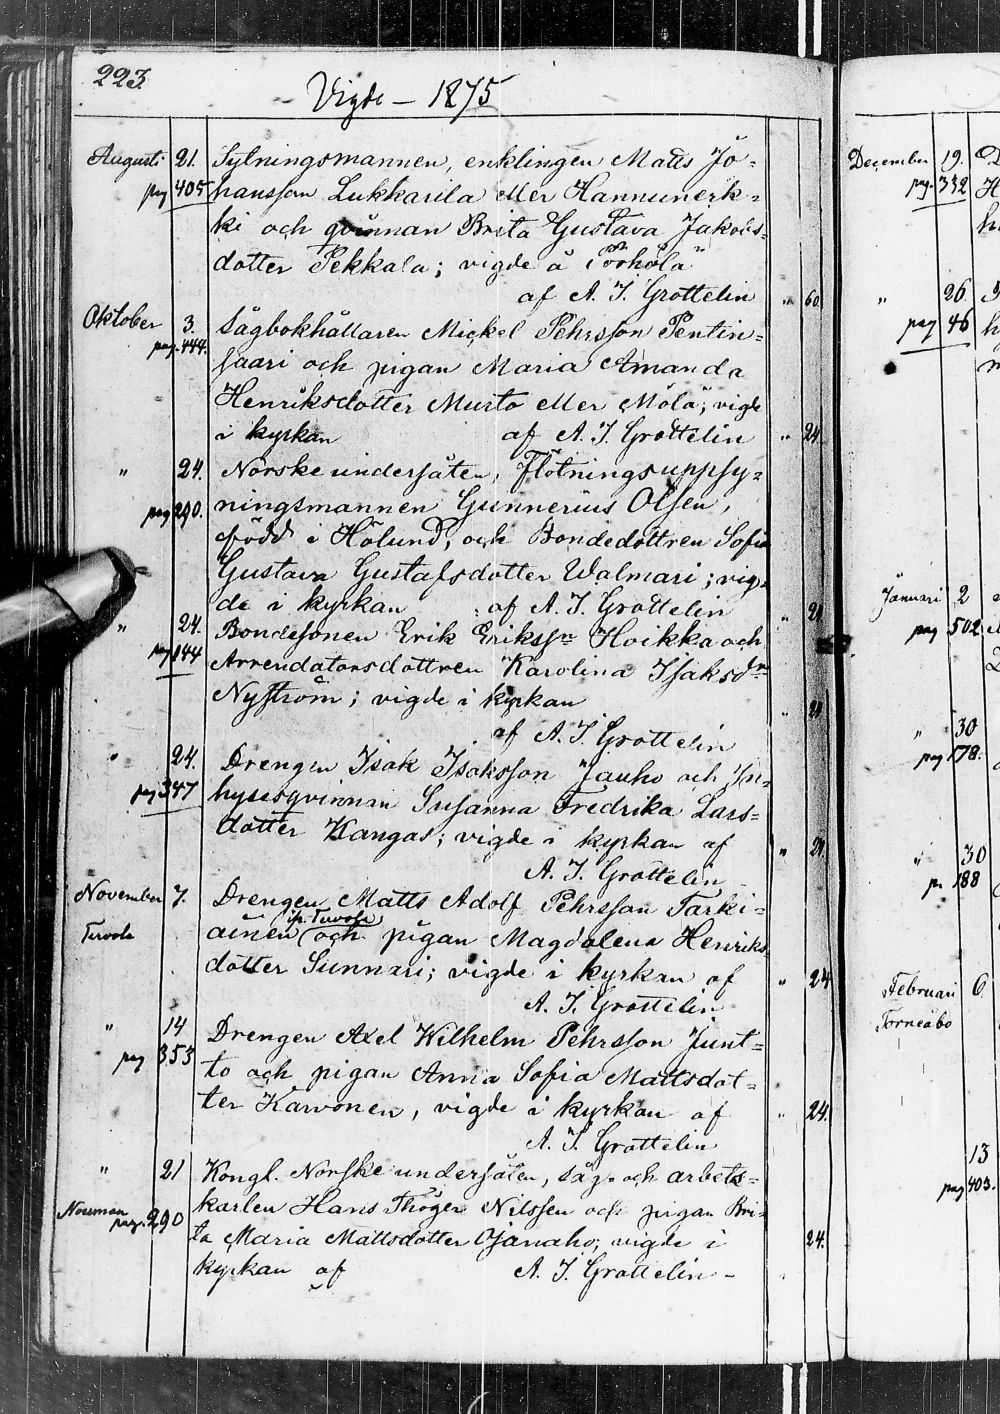 223
Vigde – 1875
Augusti 21. Sytningsmannen, enklingen Matts Jo-
pag 405. hansson Lukkarila eller Hannunerk-
ki och qvinnan Brita Gustava Jakobs-
dotter Pekkala; vigde å Törhölä
af A. J. Grottelin " 60.
Oktober 3. Sågbokhållaren Mickel Pehrsson Pentin-
pag. 444. saari och pigan Maria Amanda
Henriksdotter Musto eller Mölä; vigde
i kyrkan af A. J. Grottelin " 24.
" 24. Norske undersåten, Flötningsuppsy-
pag 290. ningsmannen Gunnerius Olsen,
född i Hölund, och Bondedottren Sofia
Gustava Gustafsdotter Walmari; vig-
de i kyrkan af A. J. Grottelin " 24
" 24. Bondesonen Erik Erikssn Hoikka och
pag 144 Arrendatorsdottren Karolina Isaksdr
Nyström; vigde i kyrkan " 24
af A. J. Grottelin
" 24. Drengen Isak Isaksson Jauho och In-
pag 347 hysesqvinnan Susanna Fredrika Lars-
dotter Kangas; vigde i kyrkan af " 24.
A. J. Grottelin
November 7. Drengen Matts Adolf Pehrsson Tarki-
Tervola äinen (ifr. Tervola) och pigan Magdalena Henriks
dotter Sunnari; vigde i kyrkan af " 24
A. J. Grottelin
" 14 Drengen Axel Wilhelm Pehrsson Junt-
pag 353 to och pigan Anna Sofia Mattsdot-
ter Karvonen, vigde i kyrkan af " 24.
A. J. Grottelin
" 21 Kongl. Norske undersåten, såg- och arbets-
pag. 290 karlen Hans Thöger Nilssen och pigan Bri-
ta Maria Mattsdotter Ojanaho; vigde i 24.
kyrkan af A. J. Grottelin –
December 19.
pag. 332
" 26.
pag 46
Januari 2
pag 502
" 30
pag 178.
" 30
p. 188
Februari 6.
Torneåbo
13
pag 403.